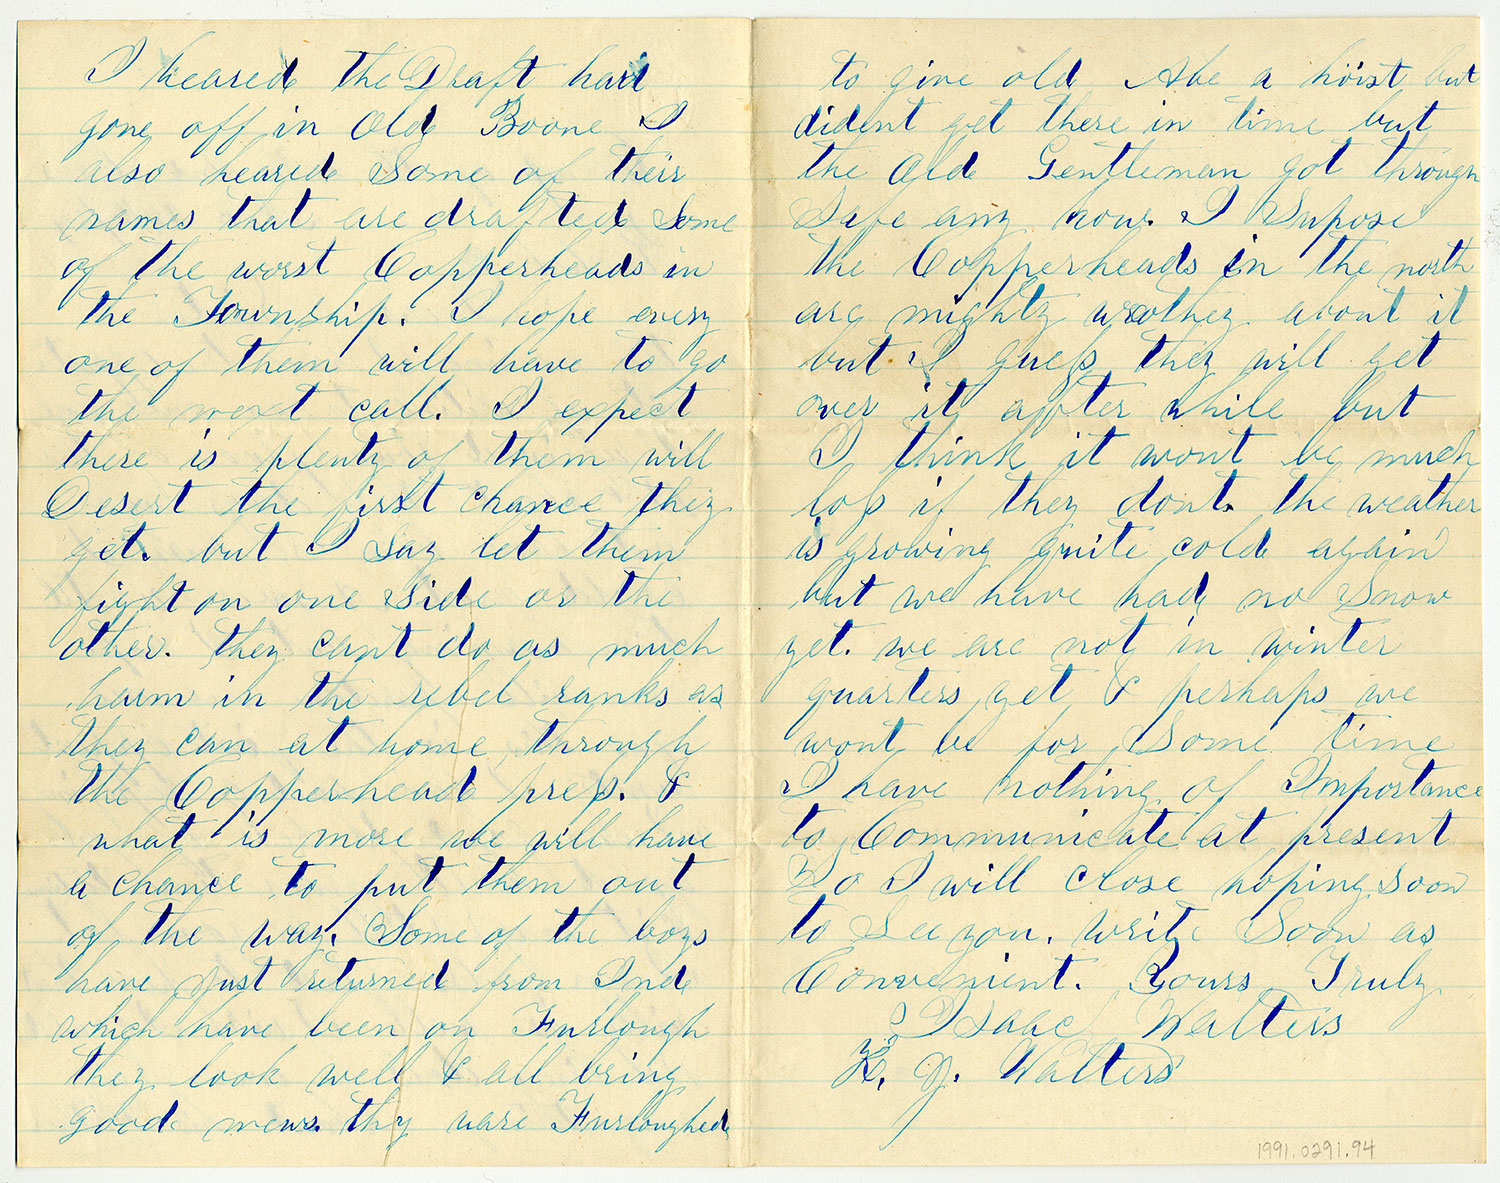 I heared the Draft had
gone off in Old Boone I
also heared Some of their
names that are drafted Some
of the worst Copperheads in
the Township. I hope every
one of them will have to go
the next call. I expect
there is plenty of them will
Desert the first chance they
get. but I Say let them
fight on one Side or the
other. they cant do as much
harm in the rebel ranks as
they can at home, through
the Copperhead press. &
what is more we will have
a chance to put them out
of the way. Some of the boys
have just returned from Ind
which have been on Furlough
they look well & all bring
good news. thy ware Furloughed
to give old Abe a hoist but
dident get there in time but
the Old Gentleman got through
Safe any how. I Supose
the Copperheads in the north
are mighty wrothey about it
but I guess they will get
over it affter while but
I think it wont be much
loss if they dont. the weather
is growing quite cold again
but we have had no Snow
yet. we are not in winter
quarters yet & perhaps we
wont be for Some time
I have nothing of Importance
to Communicate at present
So I will close hoping soon
to See you. write Soon as
Convenient. Yours Truly
Isaac Walters
J. Walters
1991.0291.94